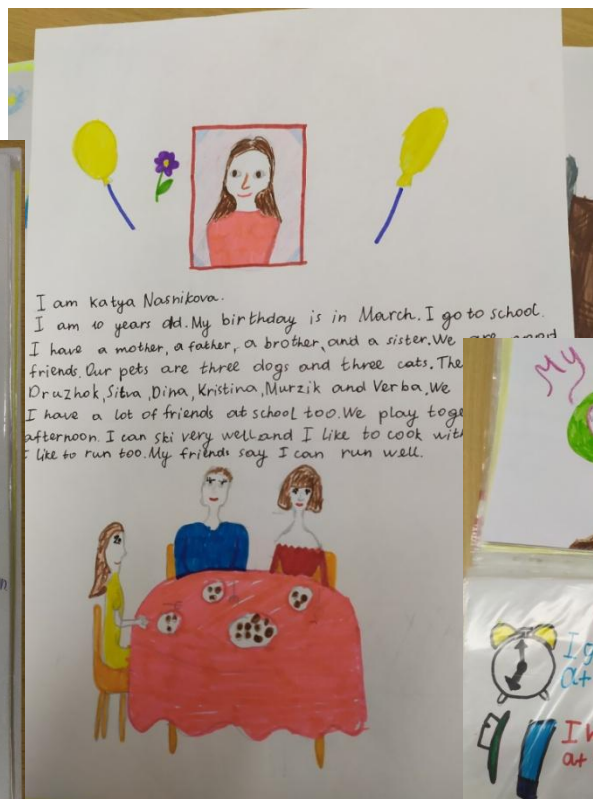 I am Katya Nasnikova.
I am 10 years old. My birthday is in March. I go to school.
I have a mother, a father, a brother, and a sister. We are good
friends. Our pets are three dogs and three cats. The
Druzhok, Silva, Dina, Kristina, Murzik and Verba. We
I have a lot of friends at school too. We play toge
afternoon. I can ski very well and I like to cook with
I like to run too. My friends say I can run well.
My
I g
at
I
at